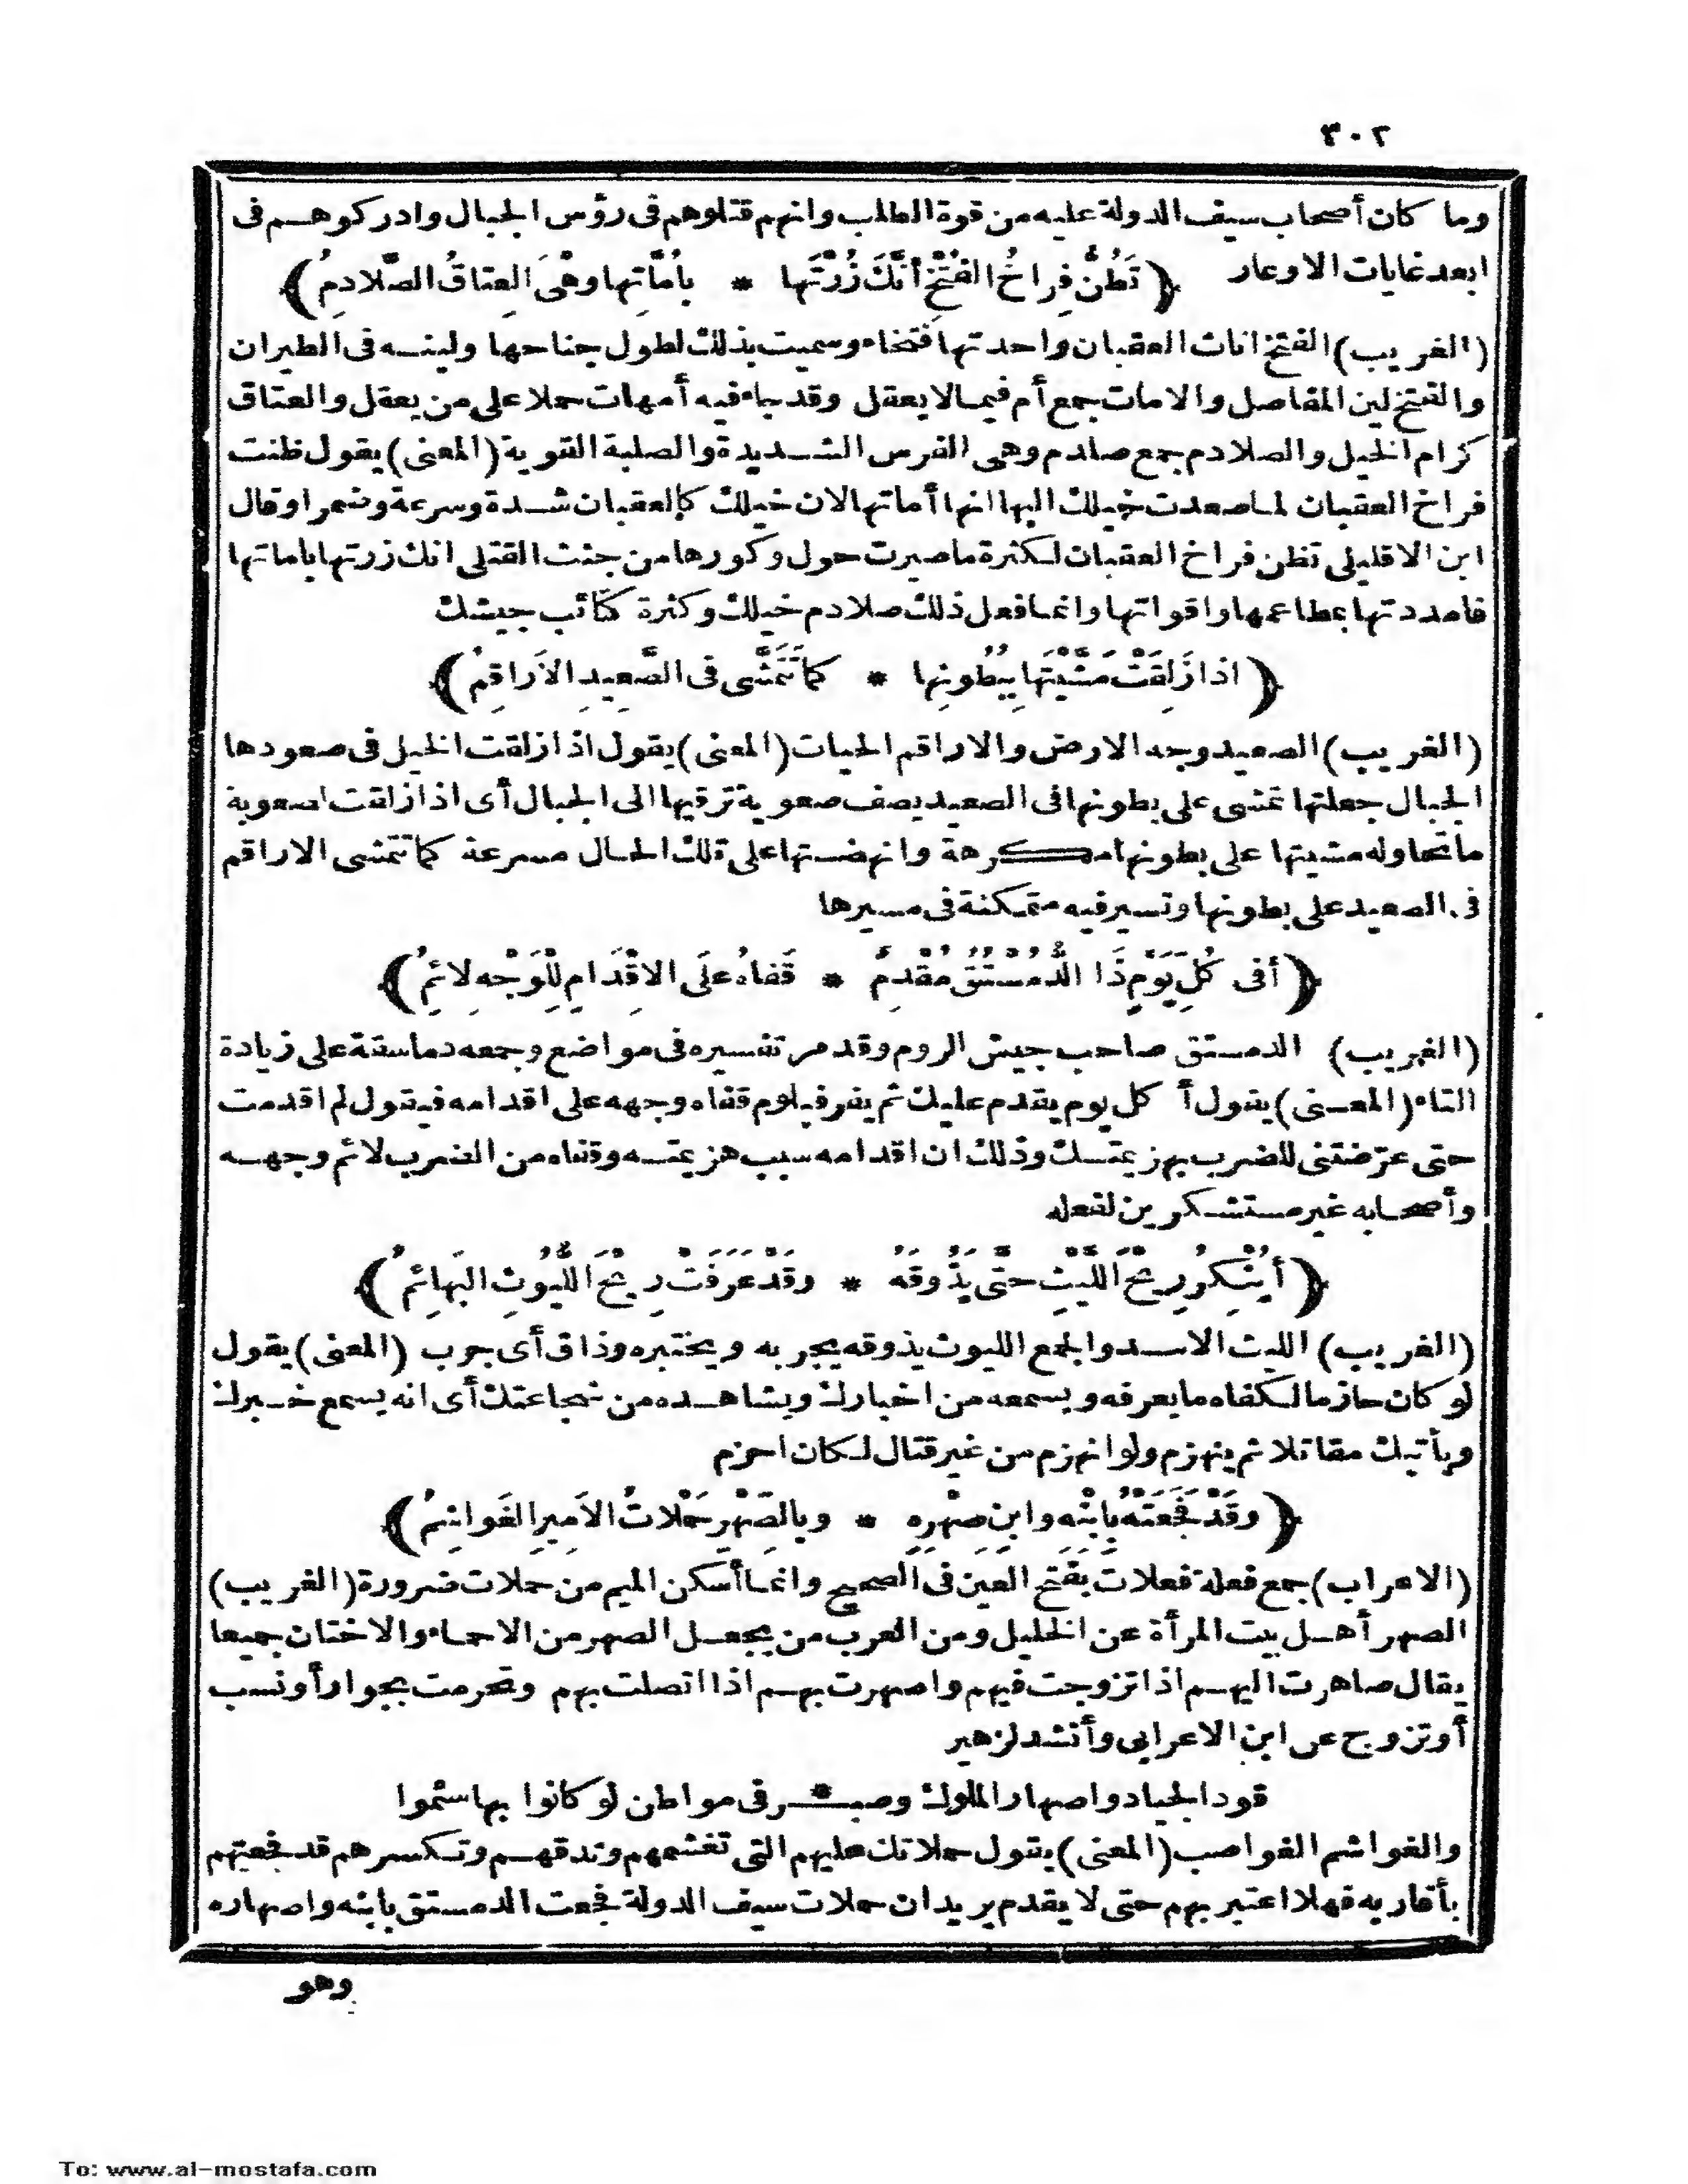 ٣٠٢
وما كان أصحاب سيف الدولة عليه من قوة الطلب وانهم قتلوهم فى رؤس الجبال وادركوهم فى
ابعد غايات الاوعار ﴿تَظُنُّ فِراخُ الفُتْخِ أنَّكَ زُرْتَها * بِأُمَّاتِها وهْىَ العِتاقُ الصَّلادِمُ﴾
(الغريب) الفتخ اناث العقبان واحدتها فتخاء وسميت بذلك لطول جناحها ولينه فى الطيران
والفتخ لين المفاصل والامات جمع أم فيما لا يعقل وقد جاء فيه أمهات حملا على من يعقل والعتاق
كرام الخيل والصلادم جمع صلدم وهى الفرس الشديدة والصلبة القوية (المعنى) يقول ظنت
فراخ العقبان لما صعدت خيلك اليها انها أماتها لان خيلك كالعقبان شدة وسرعة وضمرا وقال
ابن الاقليلى تظن فراخ العقبان لكثرة ما صيرت حول وكورها من جثث القتلى انك زرتها باماتها
فامددتها بمطاعمها واقواتها وانما فعل ذلك صلادم خيلك وكثرة كتائب جيشك
﴿اذا زَلِقَتْ مَشَّيْتَها بِبُطُونِها * كما تَتَمَشَّى فى الصَّعِيدِ الاَراقِمُ﴾
(الغريب) الصعيد وجه الارض والاراقم الحيات (المعنى) يقول اذا زلقت الخيل فى صعودها
الجبال جعلتها تمشى على بطونها فى الصعيد يصف صعوبة ترقيها الى الجبال أى اذا زلقت لصعوبة
ما تحاوله مشيتها على بطونها مكرهة وانهضتها على تلك الحال مسرعة كما تتمشى الاراقم
فى الصعيد على بطونها وتسير فيه متمكنة فى مسيرها
﴿أفى كُلِّ يَوْمٍ ذَا الدُّمُسْتُقُ مُقْدِمٌ * قَفاهُ علَى الاِقْدَامِ لِلْوَجْهِ لائِمُ﴾
(الغريب) الدمستق صاحب جيش الروم وقد مر تفسيره فى مواضع وجمعه دماستقة على زيادة
التاء (المعنى) يقول أ كل يوم يقدم عليك ثم يفر فيلوم قفاه وجهه على اقدامه فيقول لم اقدمت
حتى عرّضتنى للضرب بهزيمتك وذلك ان اقدامه سبب هزيمته وقفاه من الضرب لائم وجهه
وأصحابه غير مستشكرين لفعله
﴿أيُنْكِرُ رِيحَ اللَّيْثِ حتَّى يَذُوقَهُ * وقَدْ عَرَفَتْ رِيحَ اللُّيُوثِ البَهائِمُ﴾
(الغريب) الليث الاسد والجمع الليوث يذوقه يجربه ويختبره وذاق أى جرب (المعنى) يقول
لو كان حازما لكفاه ما يعرفه ويسمعه من اخبارك ويشاهده من شجاعتك أى انه يسمع خبرك
ويأتيك مقاتلا ثم ينهزم ولو انهزم من غير قتال لكان احزم
﴿وقَدْ فَجَعَتْهُ بِابْنِهِ وابنِ صِهْرِهِ * وبالصِّهْرِ حَمْلاتُ الاَمِيرِ الغَواشِمُ﴾
(الاعراب) جمع فعلة فعلات بفتح العين فى الصحيح وانما أسكن الميم من حملات ضرورة (الغريب)
الصهر أهل بيت المرأة عن الخليل ومن العرب من يجعل الصهر من الاحماء والاختان جميعا
يقال صاهرت اليهم اذا تزوجت فيهم واصهرت بهم اذا اتصلت بهم وتحرمت بجوار أو نسب
أو تزوج عن ابن الاعرابى وأنشد لزهير
قود الجياد واصهار الملوك وصبـ * ـر فى مواطن لو كانوا بها سئموا
والغواشم الغواصب (المعنى) يقول حملاتك عليهم التى تغشمهم وتدقهم وتكسرهم قد فجعتهم
بأقاربه فهلا اعتبر بهم حتى لا يقدم يريد ان حملات سيف الدولة فجعت الدمستق بابنه واصهاره
وهو
To: www.al-mostafa.com